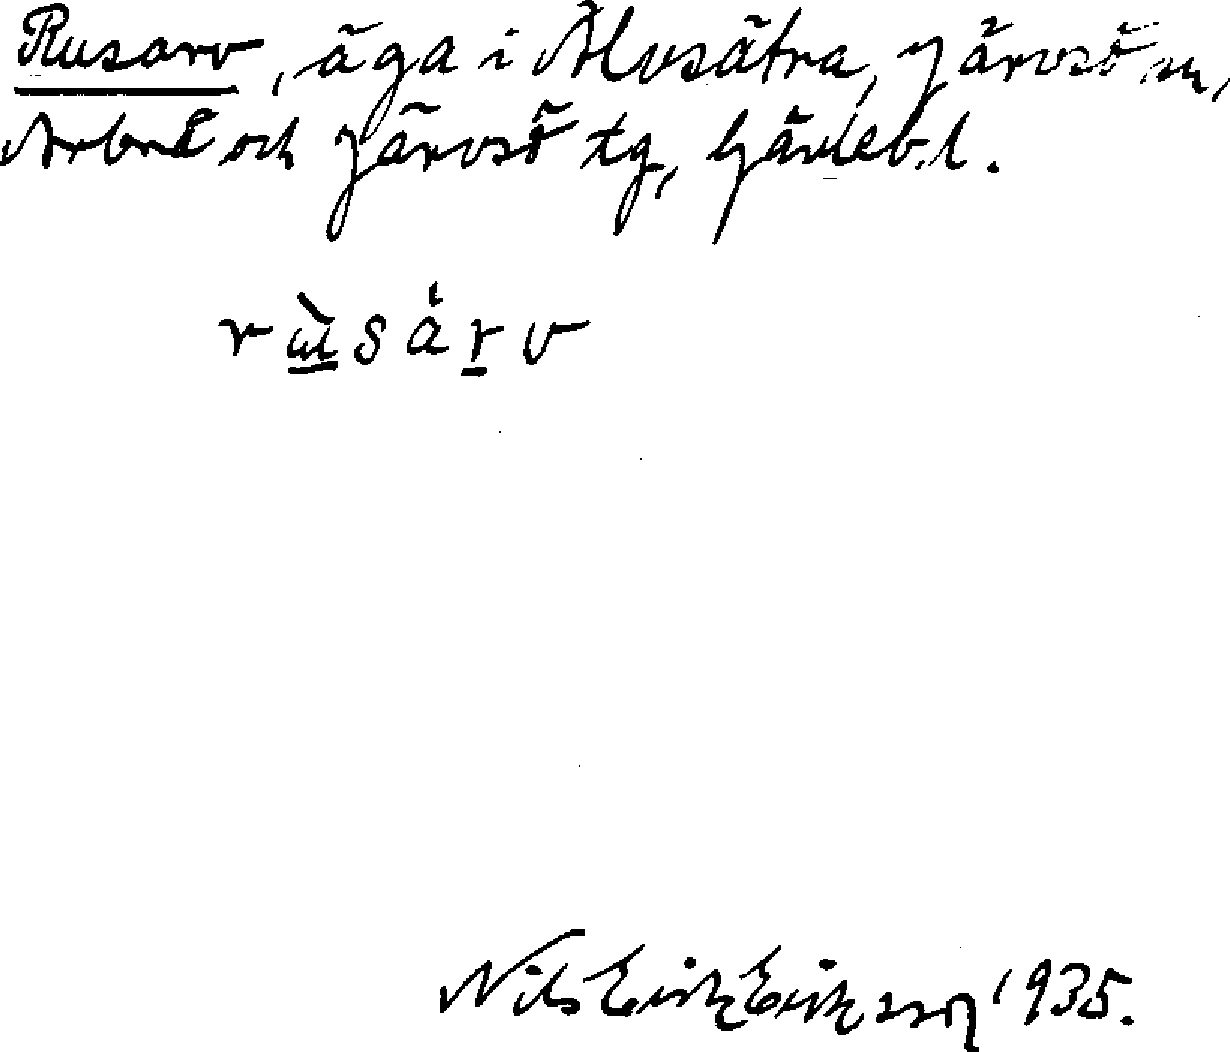 Rusarv, äga i Älvsätra, Järvsö sn,
Arbrå och Järvsö tg, Gävleb.l.
rùsárv
Nils Erik Eriksson 1935.